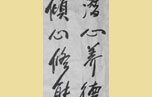 潜心养德
倾心修能